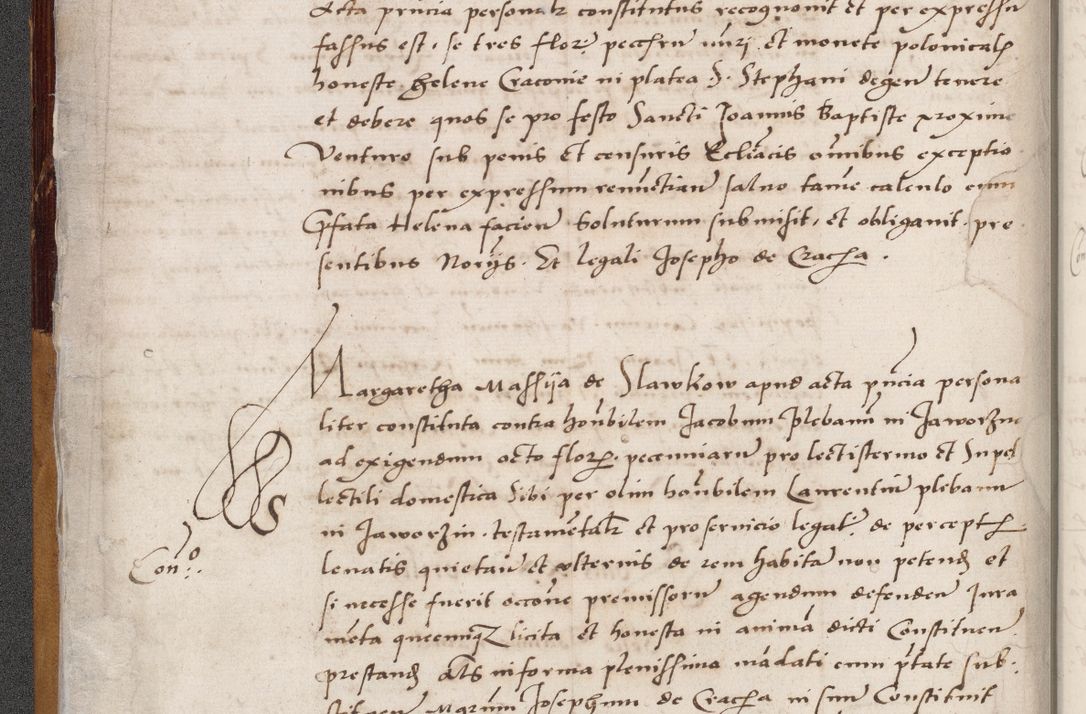 Acta pñcia personalr constitutus recognouit et per expressu
fassus est. se tres florẽ pecchru uũrj. et monete polonicalr
honeste Helene Craconie in platea S. Stephani degeñ tenere
et debere quos se pro festo Sancti Joannis Baptiste proxime
Venturo sub penis et censuris Ecliãcis omĩbus exceptio
nibus per expressum renũctiañ saluo tamẽ calculo cum
Pfata Helena facieñ Soluturum submisit. et obligauit. pre
sentibus Norijs. Et legali Josepho de Craca.
Margaretha Massija de Slawkow apud acta pñcia persona
liter constituta contra honbilem Jacobum Plebanũ in Jaworzno
ad exigendum octo florẽ. pecuniarũ pro lectisternio et Supel
lectili domestica Sibi per olim honbilem Laurentiũ plebanum
in Jaworzin. testamẽtalr et pro seruicio legat. de percept
leuatis quietañ et vlterius de rem habitã non petend et
si necesse fuerit occõne premissorũ agendum defendeñ Jura
menta queemqz licita et honesta in animã dicti Constitueñ
prestand Als in forma plenissima mãdati cum ptate sub
stitueñ Marũm Josephum de Craca in suũ Constituit
Con:o